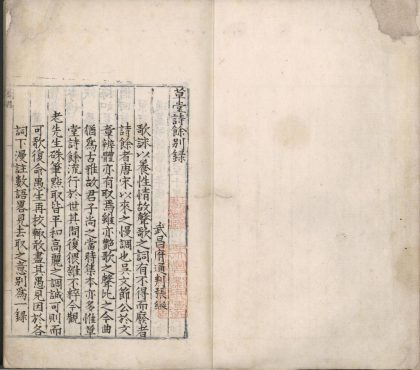 草堂詩餘別錄
武昌府通判張綖
歌詠以養性情故聲歌之詞有不得而廢者
詩餘者唐宋以來之慢調也吳文節公於文
章辨體亦有取焉雖亦艷歌之聲比之今曲
猶為古雅故君子尚之當時集本亦多惟草
堂詩餘流行於世其間復猥雜不粹今觀
老先生硃筆點取皆平和高麗之調誠可則而
可歌復命愚生再挍輙敢盡其愚見因於各
詞下漫註數語畧見去取之意別為一錄